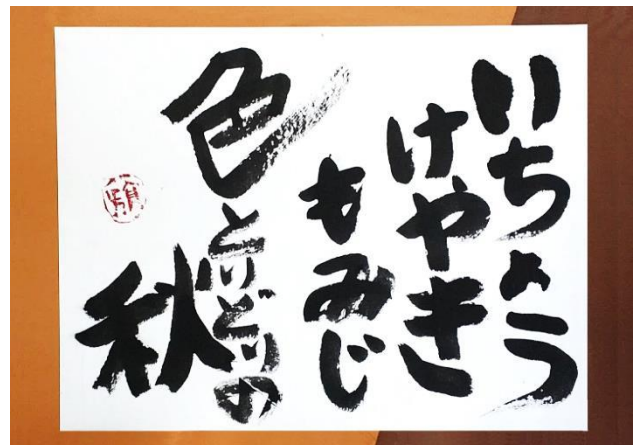 いちょう
けやき
もみじ
色とりどりの
秋